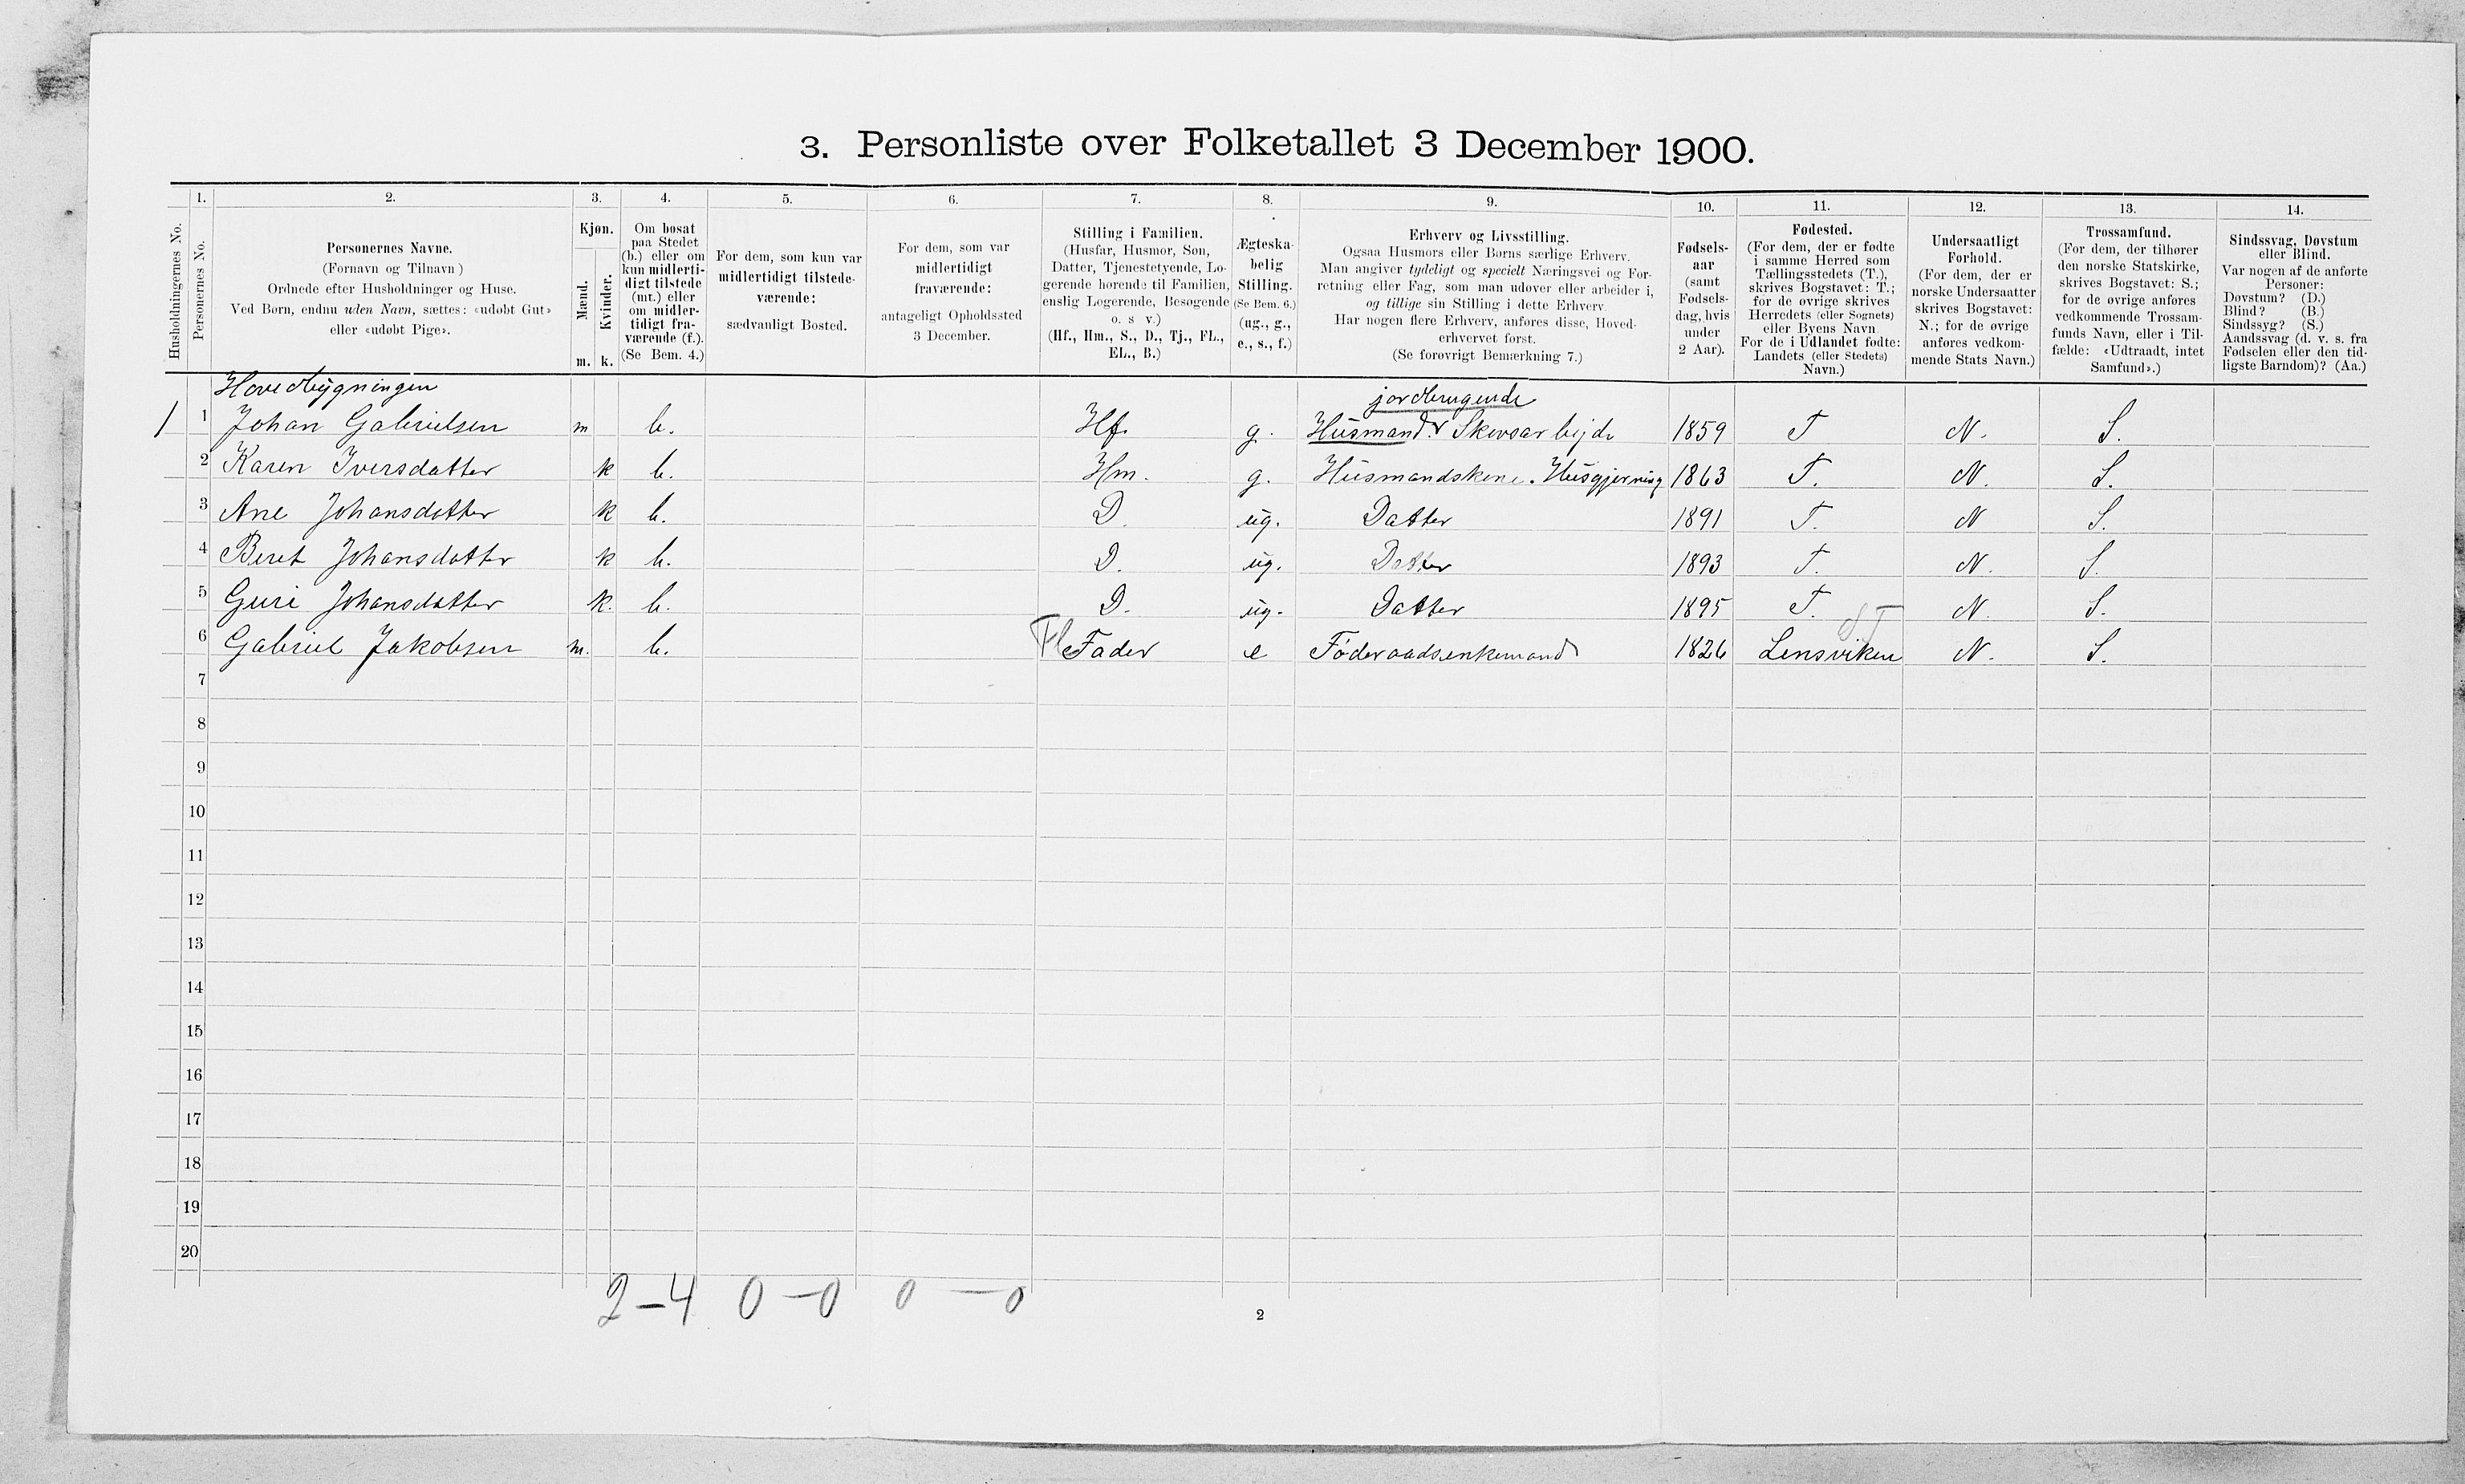 3. Personliste over Folketallet 3 December 1900.
Husholdningernes No.
1.
Personernes No.
2.
Personernes Navne.
(Fornavn og Tilnavn)
Ordnede efter Husholdninger og Huse.
Ved Børn, endnu uden Navn, sættes: «udøbt Gut»
eller «udøbt Pige».
3.
Kjøn.
Mænd.
Kvinder.
m. k.
4.
Om bosat
paa Stedet
(b.) eller om
kun midlerti-
digt tilstede
(mt.) eller
om midler-
tidigt fra-
værende (f.).
(Se Bem. 4.)
5.
For dem, som kun var
midlertidigt tilstede-
værende:
sædvanligt Bosted.
6.
For dem, som var
midlertidigt
fraværende:
antageligt Opholdssted
3 December.
7.
Stilling i Familien.
(Husfar, Husmor, Søn,
Datter, Tjenestetyende, Lo-
gerende hørende til Familien,
enslig Logerende, Besøgende
o. s v.)
(Hf., Hm., S., D., Tj., FL.,
EL., B.)
8.
Ægteska-
belig
Stilling.
(Se Bem. 6.)
(ug., g.,
e., s., f.)
9.
Erhverv og Livsstilling.
Ogsaa Husmors eller Børns særlige Erhverv.
Man angiver tydeligt og specielt Næringsvei og For-
retning eller Fag, som man udøver eller arbeider i,
og tillige sin Stilling i dette Erhverv.
Har nogen flere Erhverv, anføres disse, Hoved-
erhvervet først.
(Se forøvrigt Bemærkning 7.)
10.
Fødsels-
aar
(samt
Fødsels-
dag, hvis
under
2 Aar).
11.
Fødested.
(For dem, der er fødte
i samme Herred som
Tællingsstedets (T.),
skrives Bogstavet: T.;
for de øvrige skrives
Herredets (eller Sognets)
eller Byens Navn.
For de i Udlandet fødte:
Landets (eller Stedets)
Navn.)
12.
Undersaatligt
Forhold.
(For dem, der er
norske Undersaatter
skrives Bogstavet:
N.; for de øvrige
anføres vedkom-
mende Stats Navn.)
13.
Trossamfund.
(For dem, der tilhører
den norske Statskirke,
skrives Bogstavet: S.;
for de øvrige anføres
vedkommende Trossam-
funds Navn, eller i Til-
fælde: «Udtraadt, intet
Samfund».)
14.
Sindssvag, Døvstum
eller Blind.
Var nogen af de anførte
Personer:
Døvstum? (D.)
Blind? (B.)
Sindssyg? (S.)
Aandssvag (d. v. s. fra
Fødselen eller den tid-
ligste Barndom)? (Aa.)
Hovedbygningen
jordbrugende
1 1 Johan Gabrielsen m b. Hf. g. Husmand. Skovsarbejde 1859 T N. S.
2 Karen Iversdatter k b. Hm. g. Husmandskone. Husgjerning 1863 T. N. S.
3 Ane Johansdatter k b. D. ug. Datter 1891 T. N S.
4 Beret Johansdatter k b. D. ug. Datter 1893 T. N. S.
5 Guri Johansdatter k. b. D. ug. Datter 1895 T. N. S.
6 Gabriel Jakobsen m. b. Fl Fader e Føderaadsenkemand 1826 Lensviken ST N. S.
7
8
9
10
11
12
13
14
15
16
17
18
19
20
2-4 0-0 0-0
2